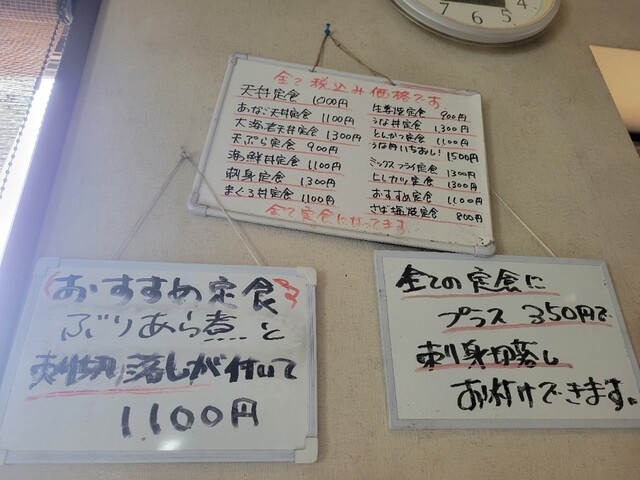 7 6 5 4
全て税込み価格です
天丼定食 1000円
あなご天丼定食 1100円
大海老天丼定食 1300円
天ぷら定食 900円
海鮮丼定食 1100円
刺身定食 1300円
まぐろ丼定食 1100円
生姜焼定食 900円
うな丼定食 1300円
とんかつ定食 1100円
うな肉いちおし! 1500円
ミックスフライ定食 1300円
ヒレカツ定食 1300円
おすすめ定食 1100円
さば塩焼定食 800円
全て定食になってます
おすすめ定食
ぶりあら煮と
刺身切り落しが付いて
1.100円
全ての定食に
プラス 350円で
刺身切落し
お付けできます。